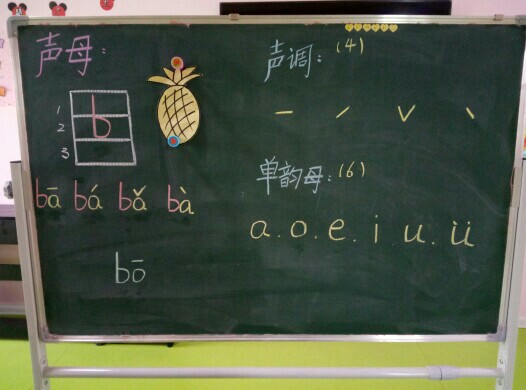 声母：
1
2
3
b
bā bá bǎ bà
bō
声调：（4）
ˉ ˊ ˇ ˋ
单韵母：（6）
a.o.e.i u.ü